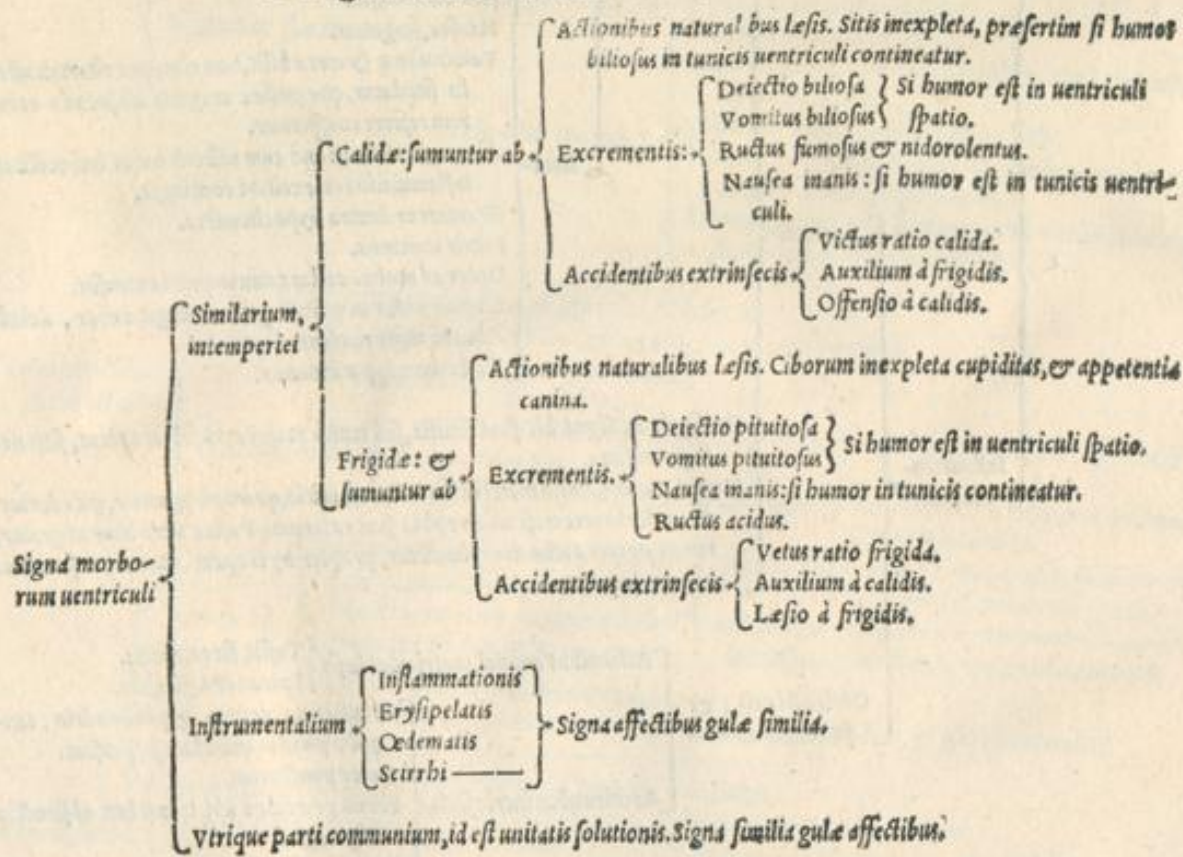 Actionibus natural bus læsis. Sitis inexpleta, præsertim si humor
biliosus in tunicis uentriculi contineatur.
Calidæ: sumuntur ab
Excrementis:
Deiectio biliosa
Vomitus biliosus
Si humor est in uentriculi
spatio.
Ructus fumosus & nidorolentus.
Nausea inanis: si humor est in tunicis uentri-
culi.
Accidentibus extrinsecis
Victus ratio calida.
Auxilium à frigidis.
Offensio à calidis.
Similarium,
intemperiei
Frigidæ: &
sumuntur ab
Actionibus naturalibus læsis. Ciborum inexpleta cupiditas, & appetentia
canina.
Excrementis.
Deiectio pituitosa
Vomitus pituitosus
Si humor est in uentriculi spatio.
Nausea inanis: si humor in tunicis contineatur.
Ructus acidus.
Accidentibus extrinsecis
Vetus ratio frigida.
Auxilium à calidis.
Læsio à frigidis.
Signa morbo-
rum uentriculi
Instrumentalium
Inflammationis
Erysipelatis
Œdematis
Scirrhi
Signa affectibus gulæ similia.
Vtrique parti communium, id est unitatis solutionis. Signa similia gulæ affectibus.